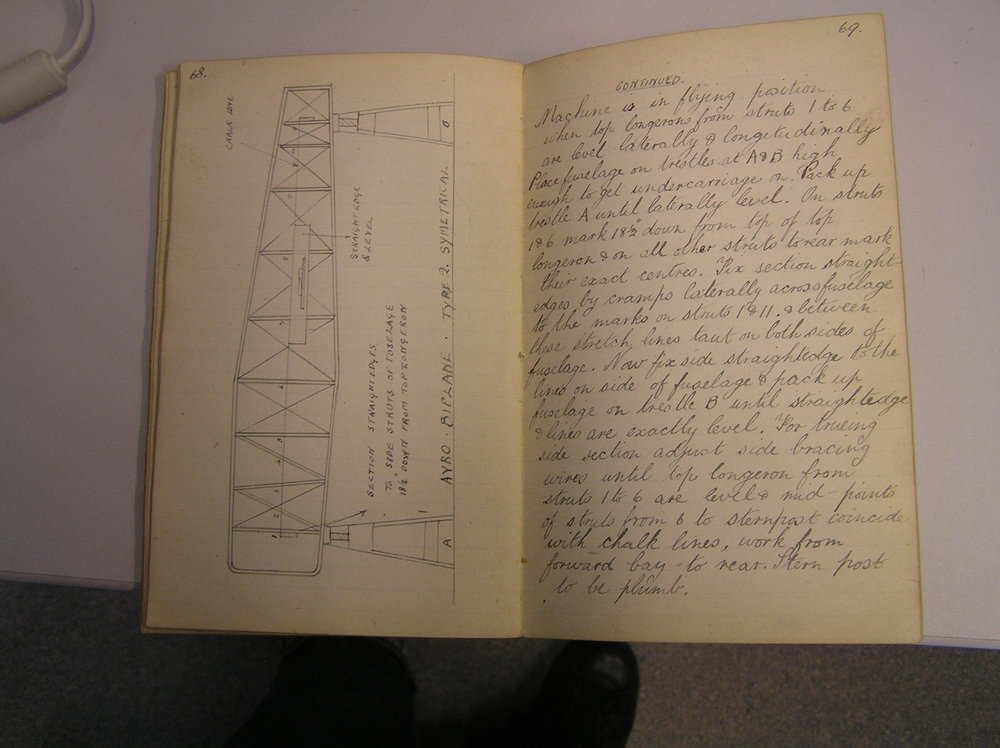 68.
CHALK LINE
STRAIGHT EDGE
& LEVEL
SECTION STRAIGHTEDGES
TO SIDE STRUTS OF FUSELAGE
18½" DOWN FROM TOP LONGERON
AVRO · BIPLANE · TYPE 2. SYMETRICAL
A
B
69.
CONTINUED.
Machine is in flying position
when top longerons from struts 1 to 6
are level laterally & longitudinally
Place fuselage on trestles at A & B high
enough to get undercarriage on. Pack up
trestle A until laterally level. On struts
1 & 6 mark 18½" down from top of top
longeron & on all other struts to rear mark
their exact centres. Fix section straight-
edges by cramps laterally across fuselage
to the marks on struts 1 & 11. & between
these stretch lines taut on both sides of
fuselage. Now fix side straightedge to the
lines on side of fuselage & pack up
fuselage on trestle B until straightedge
& lines are exactly level. For trueing
side section adjust side bracing
wires until top longeron from
struts 1 to 6 are level & mid-points
of struts from 6 to sternpost coincide
with chalk lines, work from
forward bay to rear. Stern post
to be plumb.